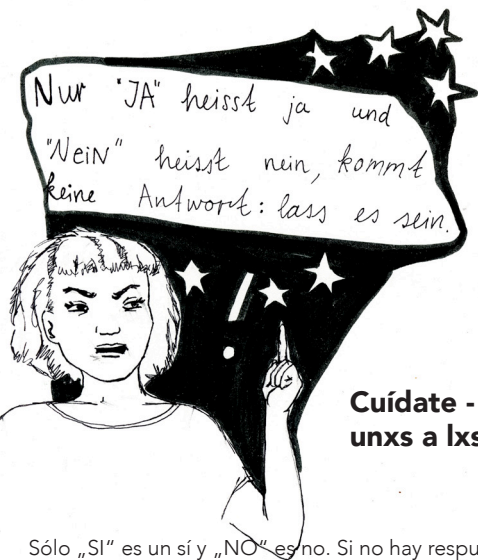 Nur "JA" heisst ja und
"NeiN" heisst nein, kommt
keine Antwort: lass es sein.
Cuídate -
unxs a lxs
Sólo „SI“ es un sí y „NO“ es no. Si no hay respu